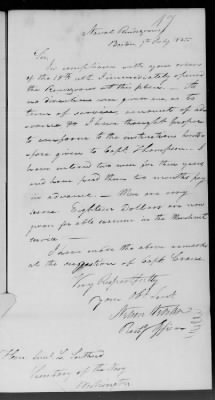 Naval Rendezvous
Boston 7th July 1825
Sir,
In compliance with your orders
of the 18th ult. I immediately opened
the Rendezvous at this place. As
no directions were given me, as to
terms of service, amounts of ad-
vance &c I have thought proper
to conform to the instructions hereto-
fore given to Capt Thompson. I
have entered two men for three years
and have paid them two months pay
in advance. Men are very
scarce. Eighteen Dollars are now
given for able seamen in the Merchant
service.
I have made the above remarks
at the suggestion of Capt Crane.
Very Respectfully
Your Obt Servt
Honr Saml L. Southard
Secretary of the Navy
Washington